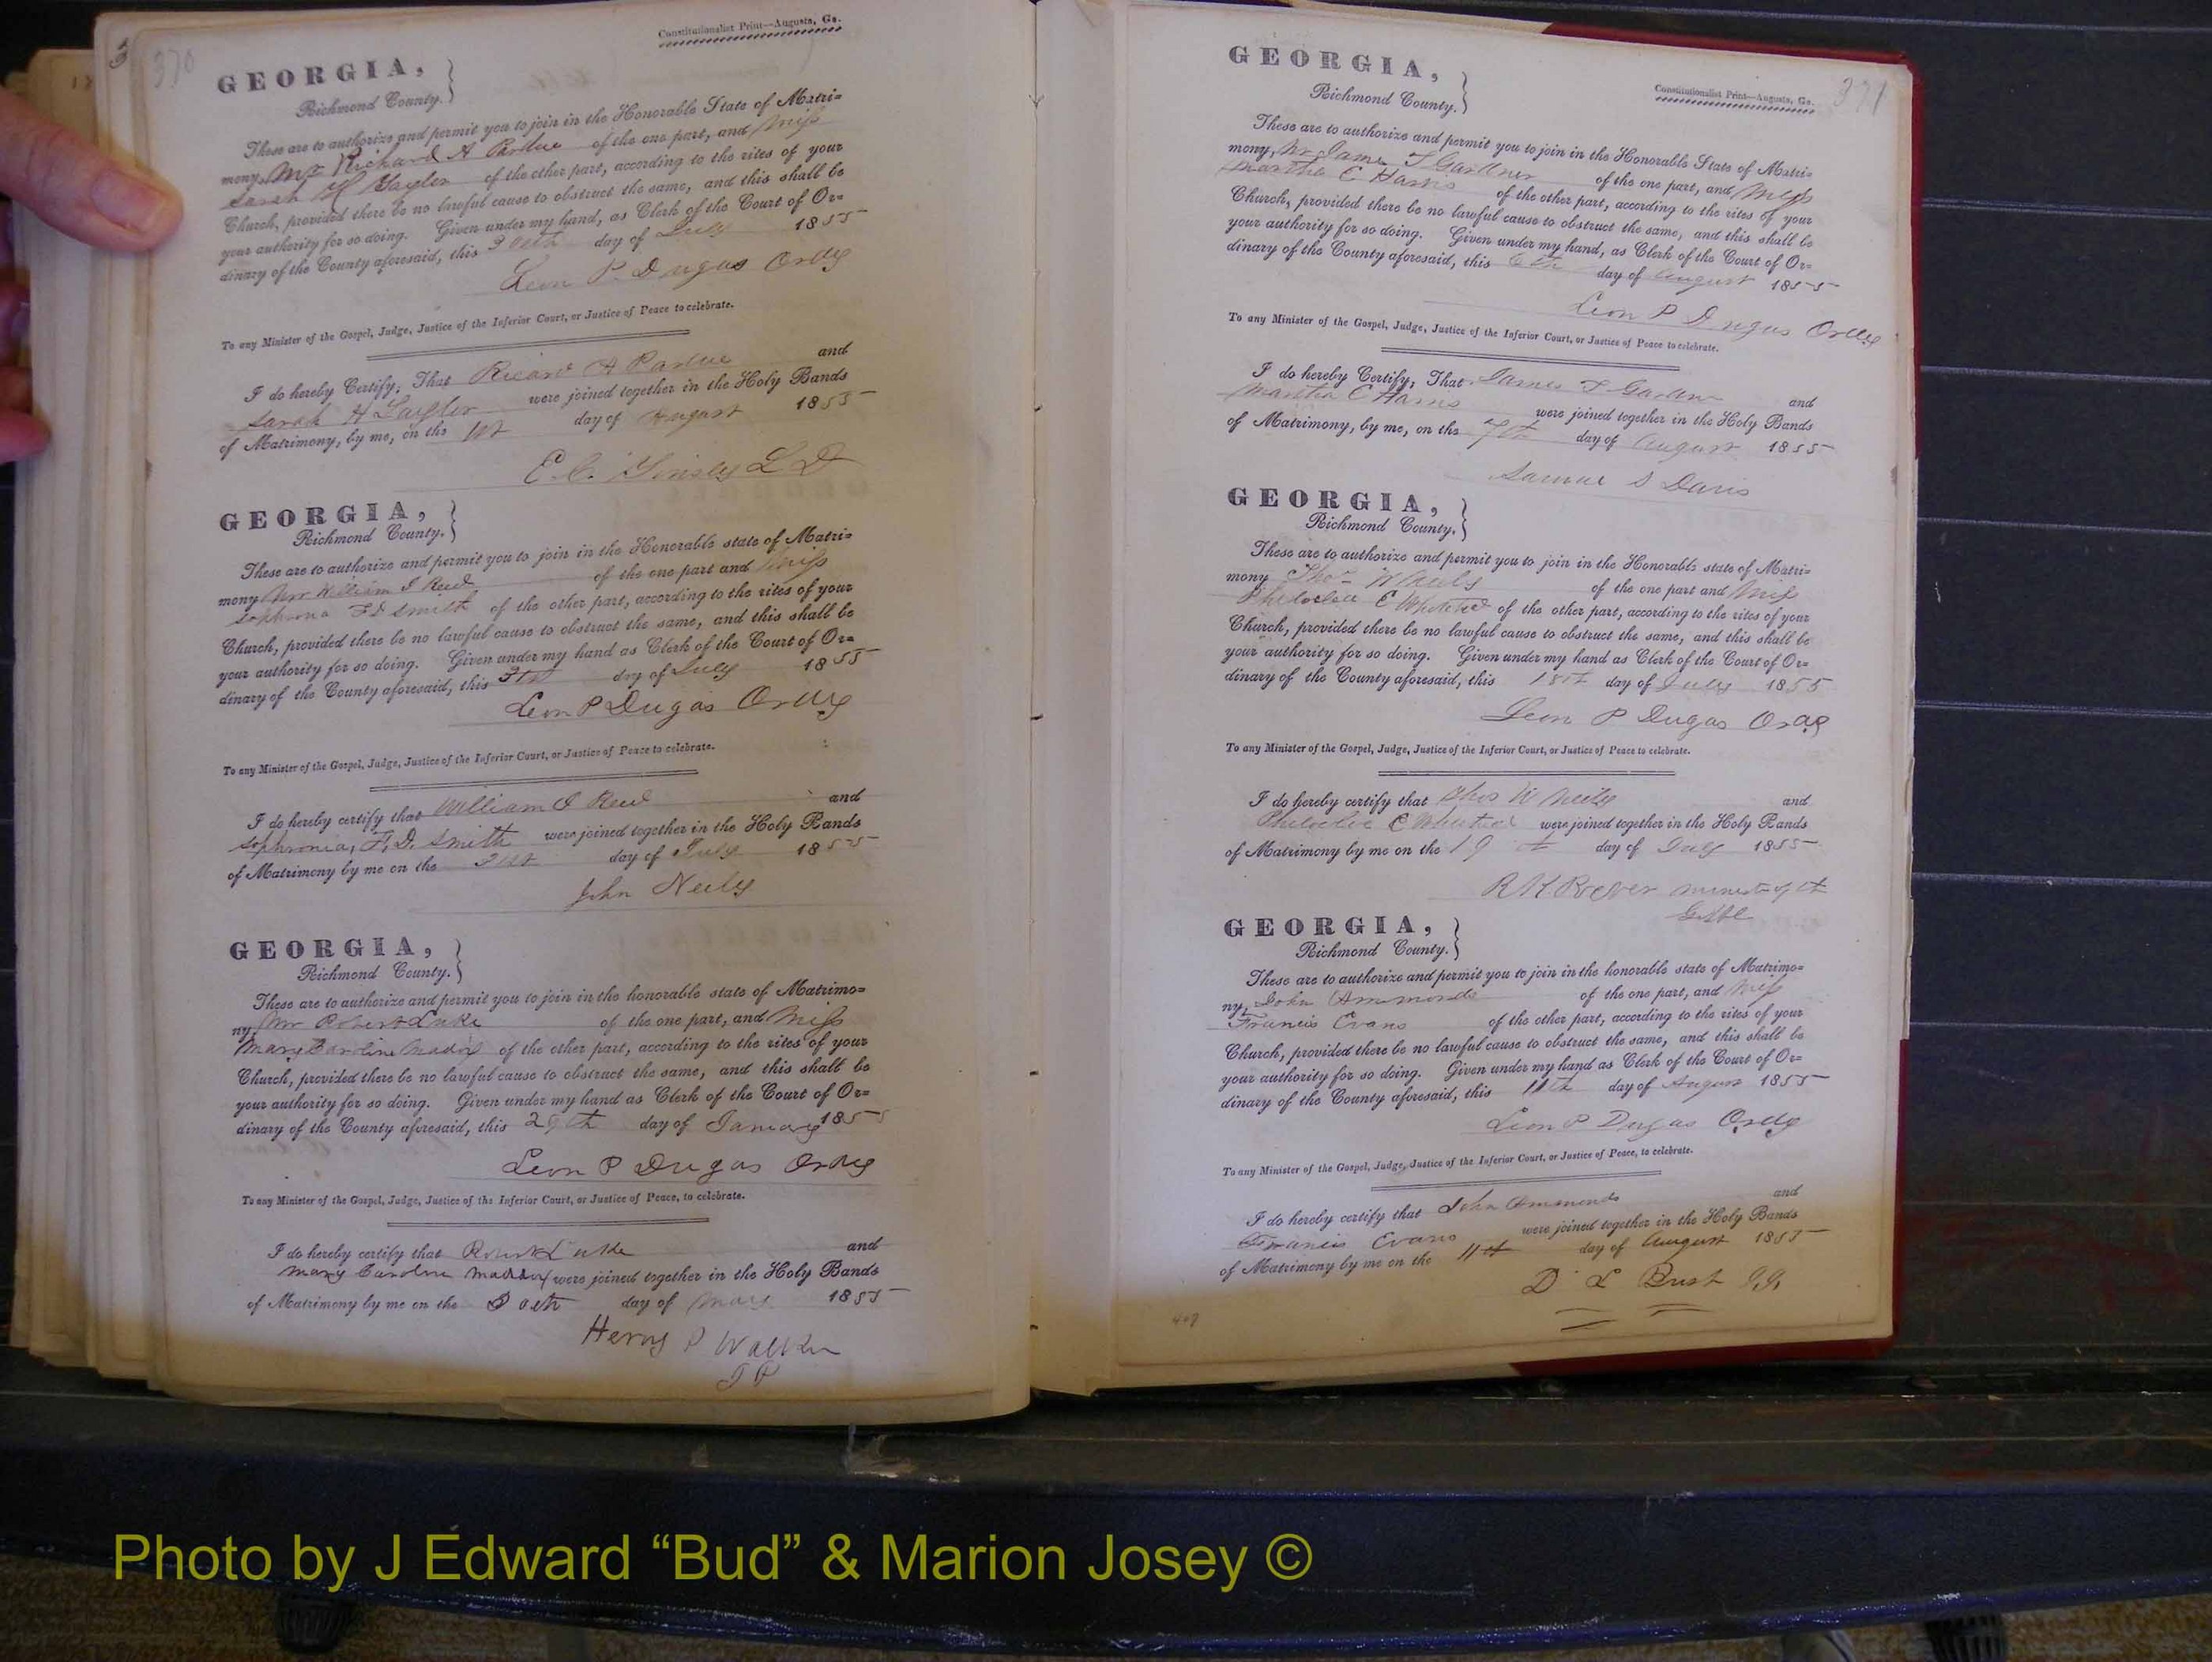 370
Constitutionalist Print—Augusta, Ga.
GEORGIA,
Richmond County.
These are to authorize and permit you to join in the Honorable State of Matri=
mony, Mr Richard A Pardue of the one part, and Miss
Sarah H Taylor of the other part, according to the rites of your
Church, provided there be no lawful cause to obstruct the same, and this shall be
your authority for so doing. Given under my hand, as Clerk of the Court of Or=
dinary of the County aforesaid, this 30th day of July 1855
Leon P. Dugas Ordy
To any Minister of the Gospel, Judge, Justice of the Inferior Court, or Justice of Peace to celebrate.
I do hereby Certify; That Ricard A Pardue and
Sarah H Taylor were joined together in the Holy Bands
of Matrimony, by me, on the 1st day of August 1855
E. C. Tinsley L D
GEORGIA,
Richmond County.
These are to authorize and permit you to join in the Honorable state of Matri=
mony Mr William I Reed of the one part and Miss
Sophrona F D Smith of the other part, according to the rites of your
Church, provided there be no lawful cause to obstruct the same, and this shall be
your authority for so doing. Given under my hand as Clerk of the Court of Or=
dinary of the County aforesaid, this 31st day of July 1855
Leon P Dugas Ordy
To any Minister of the Gospel, Judge, Justice of the Inferior Court, or Justice of Peace to celebrate.
I do hereby certify that William I Reed and
Sophronia, F. D. Smith were joined together in the Holy Bands
of Matrimony by me on the 31st day of July 1855
John Neely
GEORGIA,
Richmond County.
These are to authorize and permit you to join in the honorable state of Matrimo=
ny, Mr Robert Luke of the one part, and Miss
Mary Caroline Madix of the other part, according to the rites of your
Church, provided there be no lawful cause to obstruct the same, and this shall be
your authority for so doing. Given under my hand as Clerk of the Court of Or=
dinary of the County aforesaid, this 29th day of January 1855
Leon P Dugas Ordy
To any Minister of the Gospel, Judge, Justice of the Inferior Court, or Justice of Peace, to celebrate.
I do hereby certify that Robert Luke and
Mary Caroline Maddox were joined together in the Holy Bands
of Matrimony by me on the 30th day of May 1855
Henry P Walker
J P
371
Constitutionalist Print—Augusta, Ga.
GEORGIA,
Richmond County.
These are to authorize and permit you to join in the Honorable State of Matri=
mony, Mr James T Gardner of the one part, and Miss
Martha C Harris of the other part, according to the rites of your
Church, provided there be no lawful cause to obstruct the same, and this shall be
your authority for so doing. Given under my hand, as Clerk of the Court of Or=
dinary of the County aforesaid, this 6th day of August 1855
Leon P Dugas Ordy
To any Minister of the Gospel, Judge, Justice of the Inferior Court, or Justice of Peace to celebrate.
I do hereby Certify; That James T Gardner and
Martha C Harris were joined together in the Holy Bands
of Matrimony, by me, on the 7th day of August 1855
Samuel S Davis
GEORGIA,
Richmond County.
These are to authorize and permit you to join in the Honorable state of Matri=
mony Thos W Neely of the one part and Miss
C of the other part, according to the rites of your
Church, provided there be no lawful cause to obstruct the same, and this shall be
your authority for so doing. Given under my hand as Clerk of the Court of Or=
dinary of the County aforesaid, this 18th day of July 1855
Leon P Dugas Ordy
To any Minister of the Gospel, Judge, Justice of the Inferior Court, or Justice of Peace to celebrate.
I do hereby certify that Thos W Neely and
C were joined together in the Holy Bands
of Matrimony by me on the 19th day of July 1855
R K Porter
GEORGIA,
Richmond County.
These are to authorize and permit you to join in the honorable state of Matrimo=
ny, John Ammonds of the one part, and Miss
Francis Evans of the other part, according to the rites of your
Church, provided there be no lawful cause to obstruct the same, and this shall be
your authority for so doing. Given under my hand as Clerk of the Court of Or=
dinary of the County aforesaid, this 11th day of August 1855
Leon P Dugas Ordy
To any Minister of the Gospel, Judge, Justice of the Inferior Court, or Justice of Peace, to celebrate.
I do hereby certify that John Ammonds and
Francis Evans were joined together in the Holy Bands
of Matrimony by me on the 11th day of August 1855
D L Bush J.P.
Photo by J Edward “Bud” & Marion Josey ©